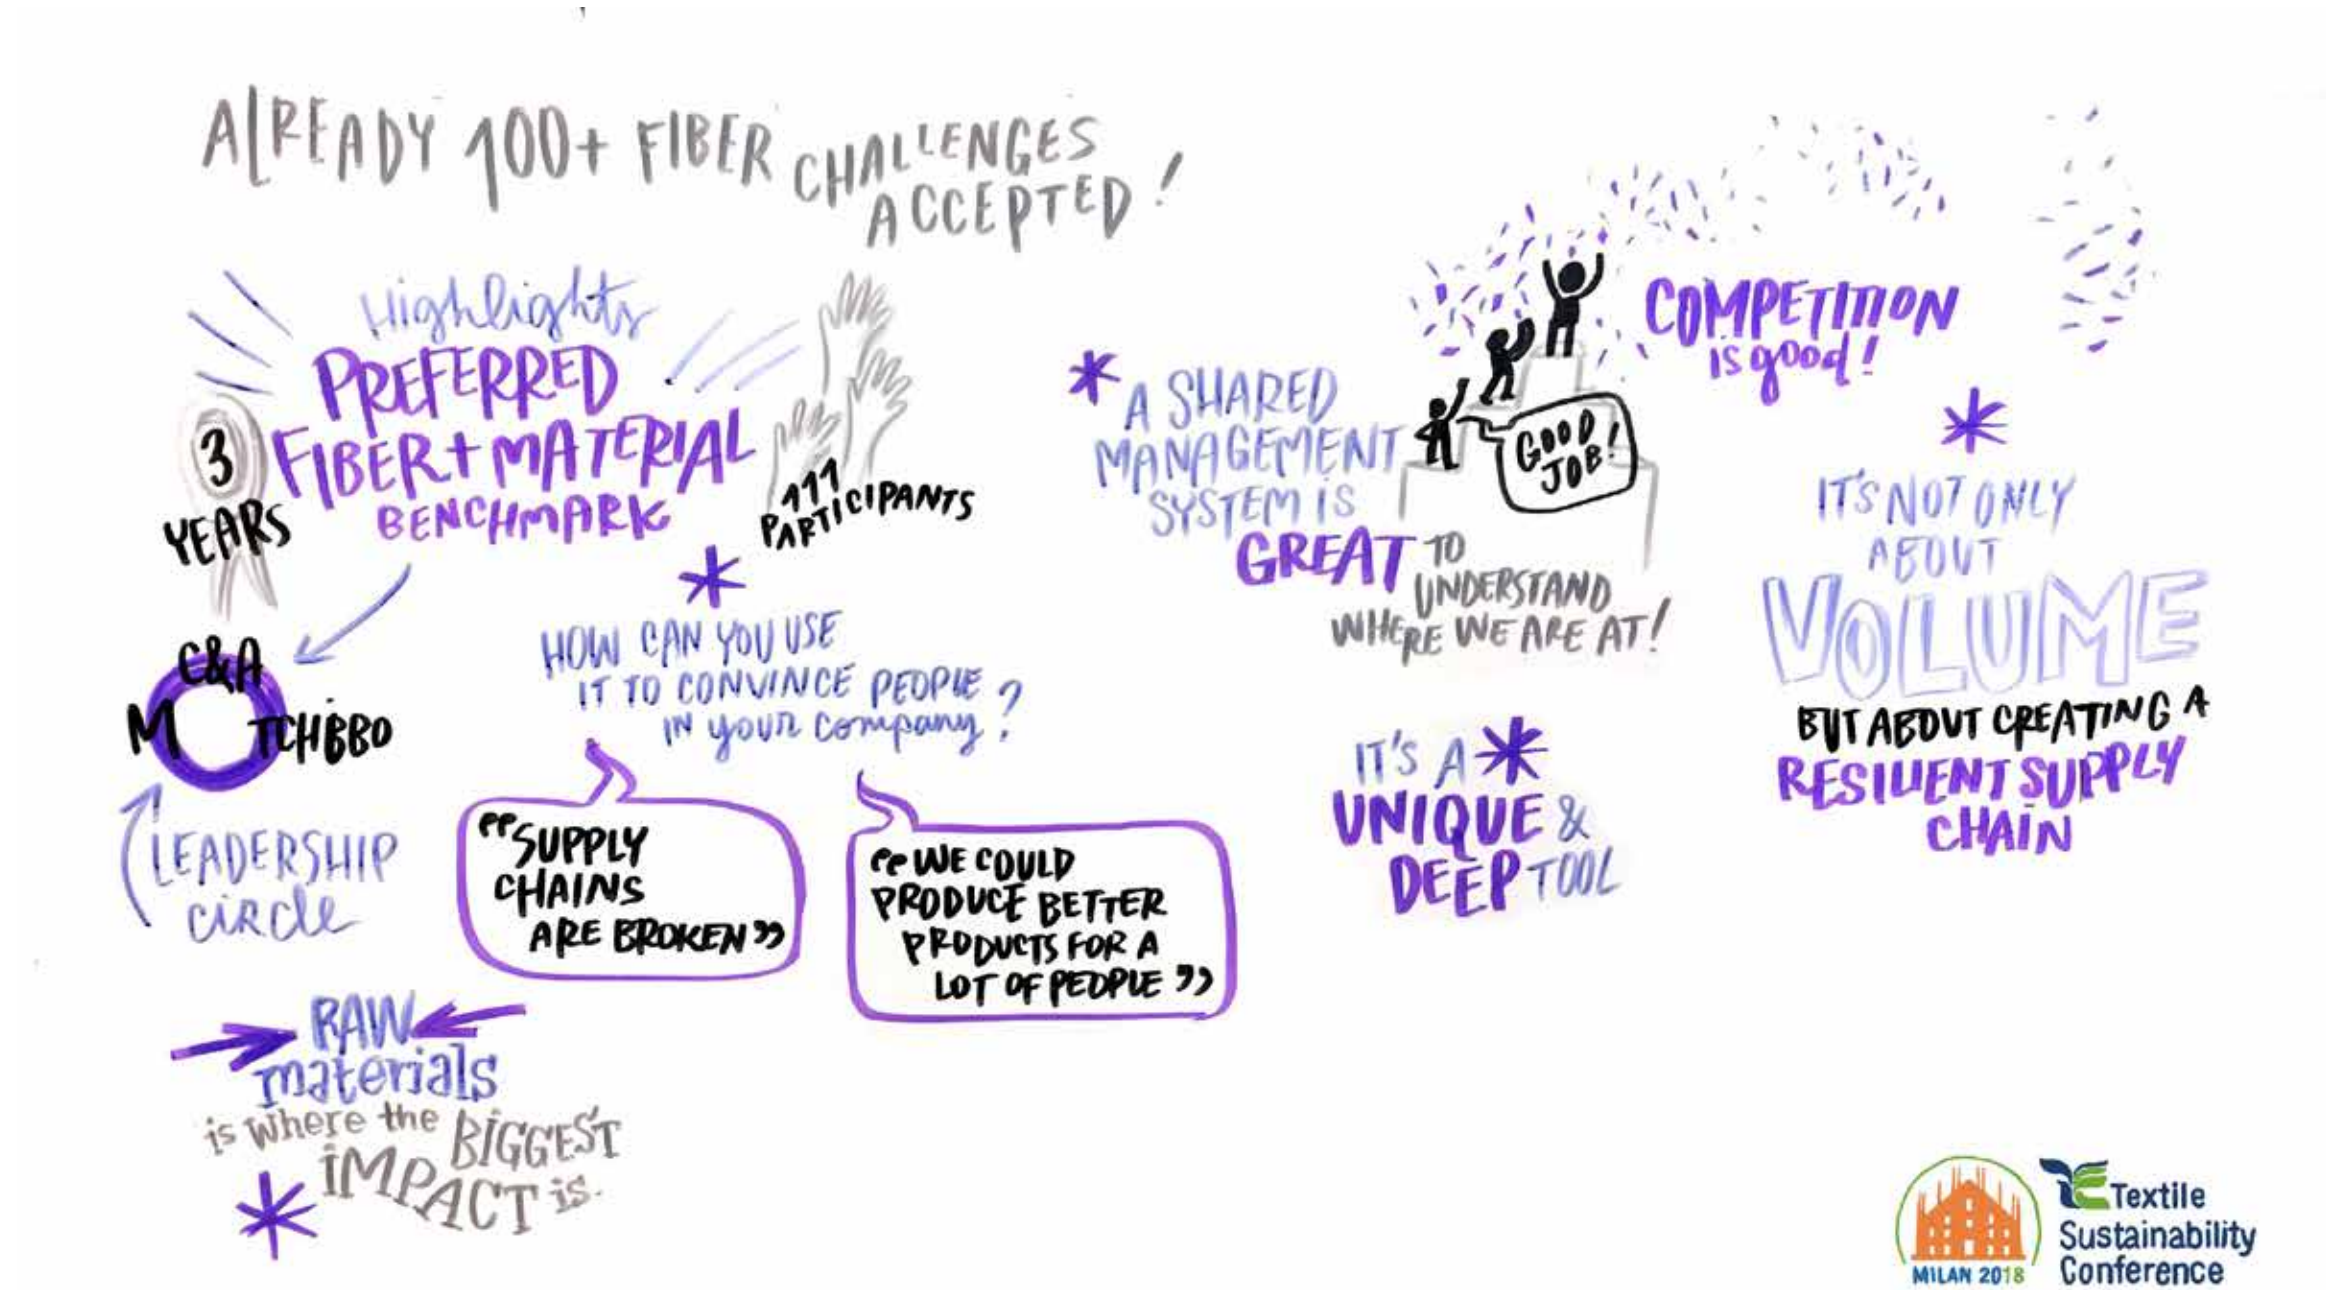 ALREADY 100+ FIBER CHALLENGES
ACCEPTED!
Highlights
PREFERRED
FIBER + MATERIAL
BENCHMARK
3
YEARS
111
PARTICIPANTS
C&A
M
TCHIBBO
LEADERSHIP
CIRCLE
*
HOW CAN YOU USE
IT TO CONVINCE PEOPLE
IN YOUR COMPANY?
"SUPPLY
CHAINS
ARE BROKEN"
"WE COULD
PRODUCE BETTER
PRODUCTS FOR A
LOT OF PEOPLE"
RAW
materials
is where the BIGGEST
IMPACT is.
*
* A SHARED
MANAGEMENT
SYSTEM IS
GREAT TO
UNDERSTAND
WHERE WE ARE AT!
GOOD
JOB!
COMPETITION
is good!
IT'S A *
UNIQUE &
DEEP TOOL
*
IT'S NOT ONLY
ABOUT
VOLUME
BUT ABOUT CREATING A
RESILIENT SUPPLY
CHAIN
MILAN 2018
Textile
Sustainability
Conference